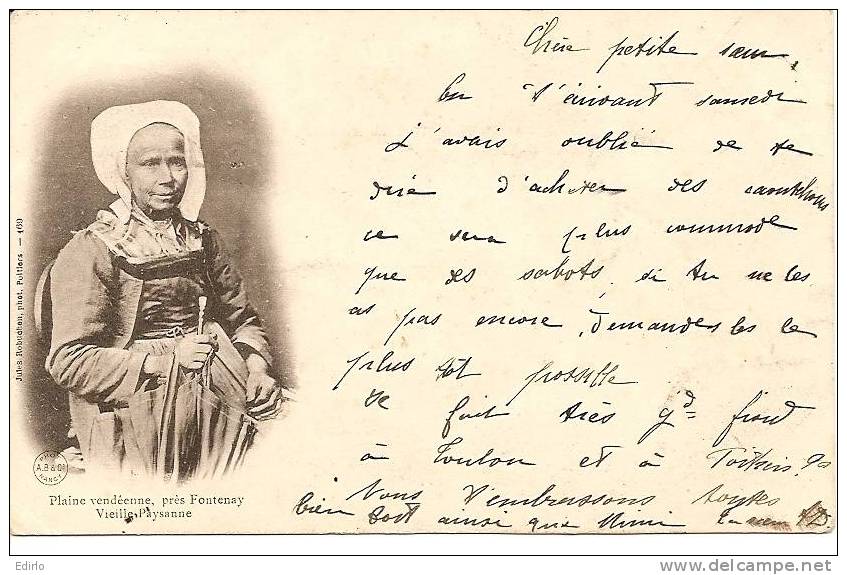 Chère petite sœur,
En t'écrivant samedi
j'avais oublié de te
dire d'acheter des caoutchoucs
ce sera plus commode
que des sabots, si tu ne les
as pas encore, demandes les le
plus tôt possible
fait très gd froid
à Toulon et à Poitiers.
Nous t'embrassons toutes
bien fort ainsi que Mimi
Jules Robuchon, phot. Poitiers — 169
PHOT
A.B & Cie
NANCY
Plaine vendéenne, près Fontenay
Vieille Paysanne
Edirlo
www.delcampe.net